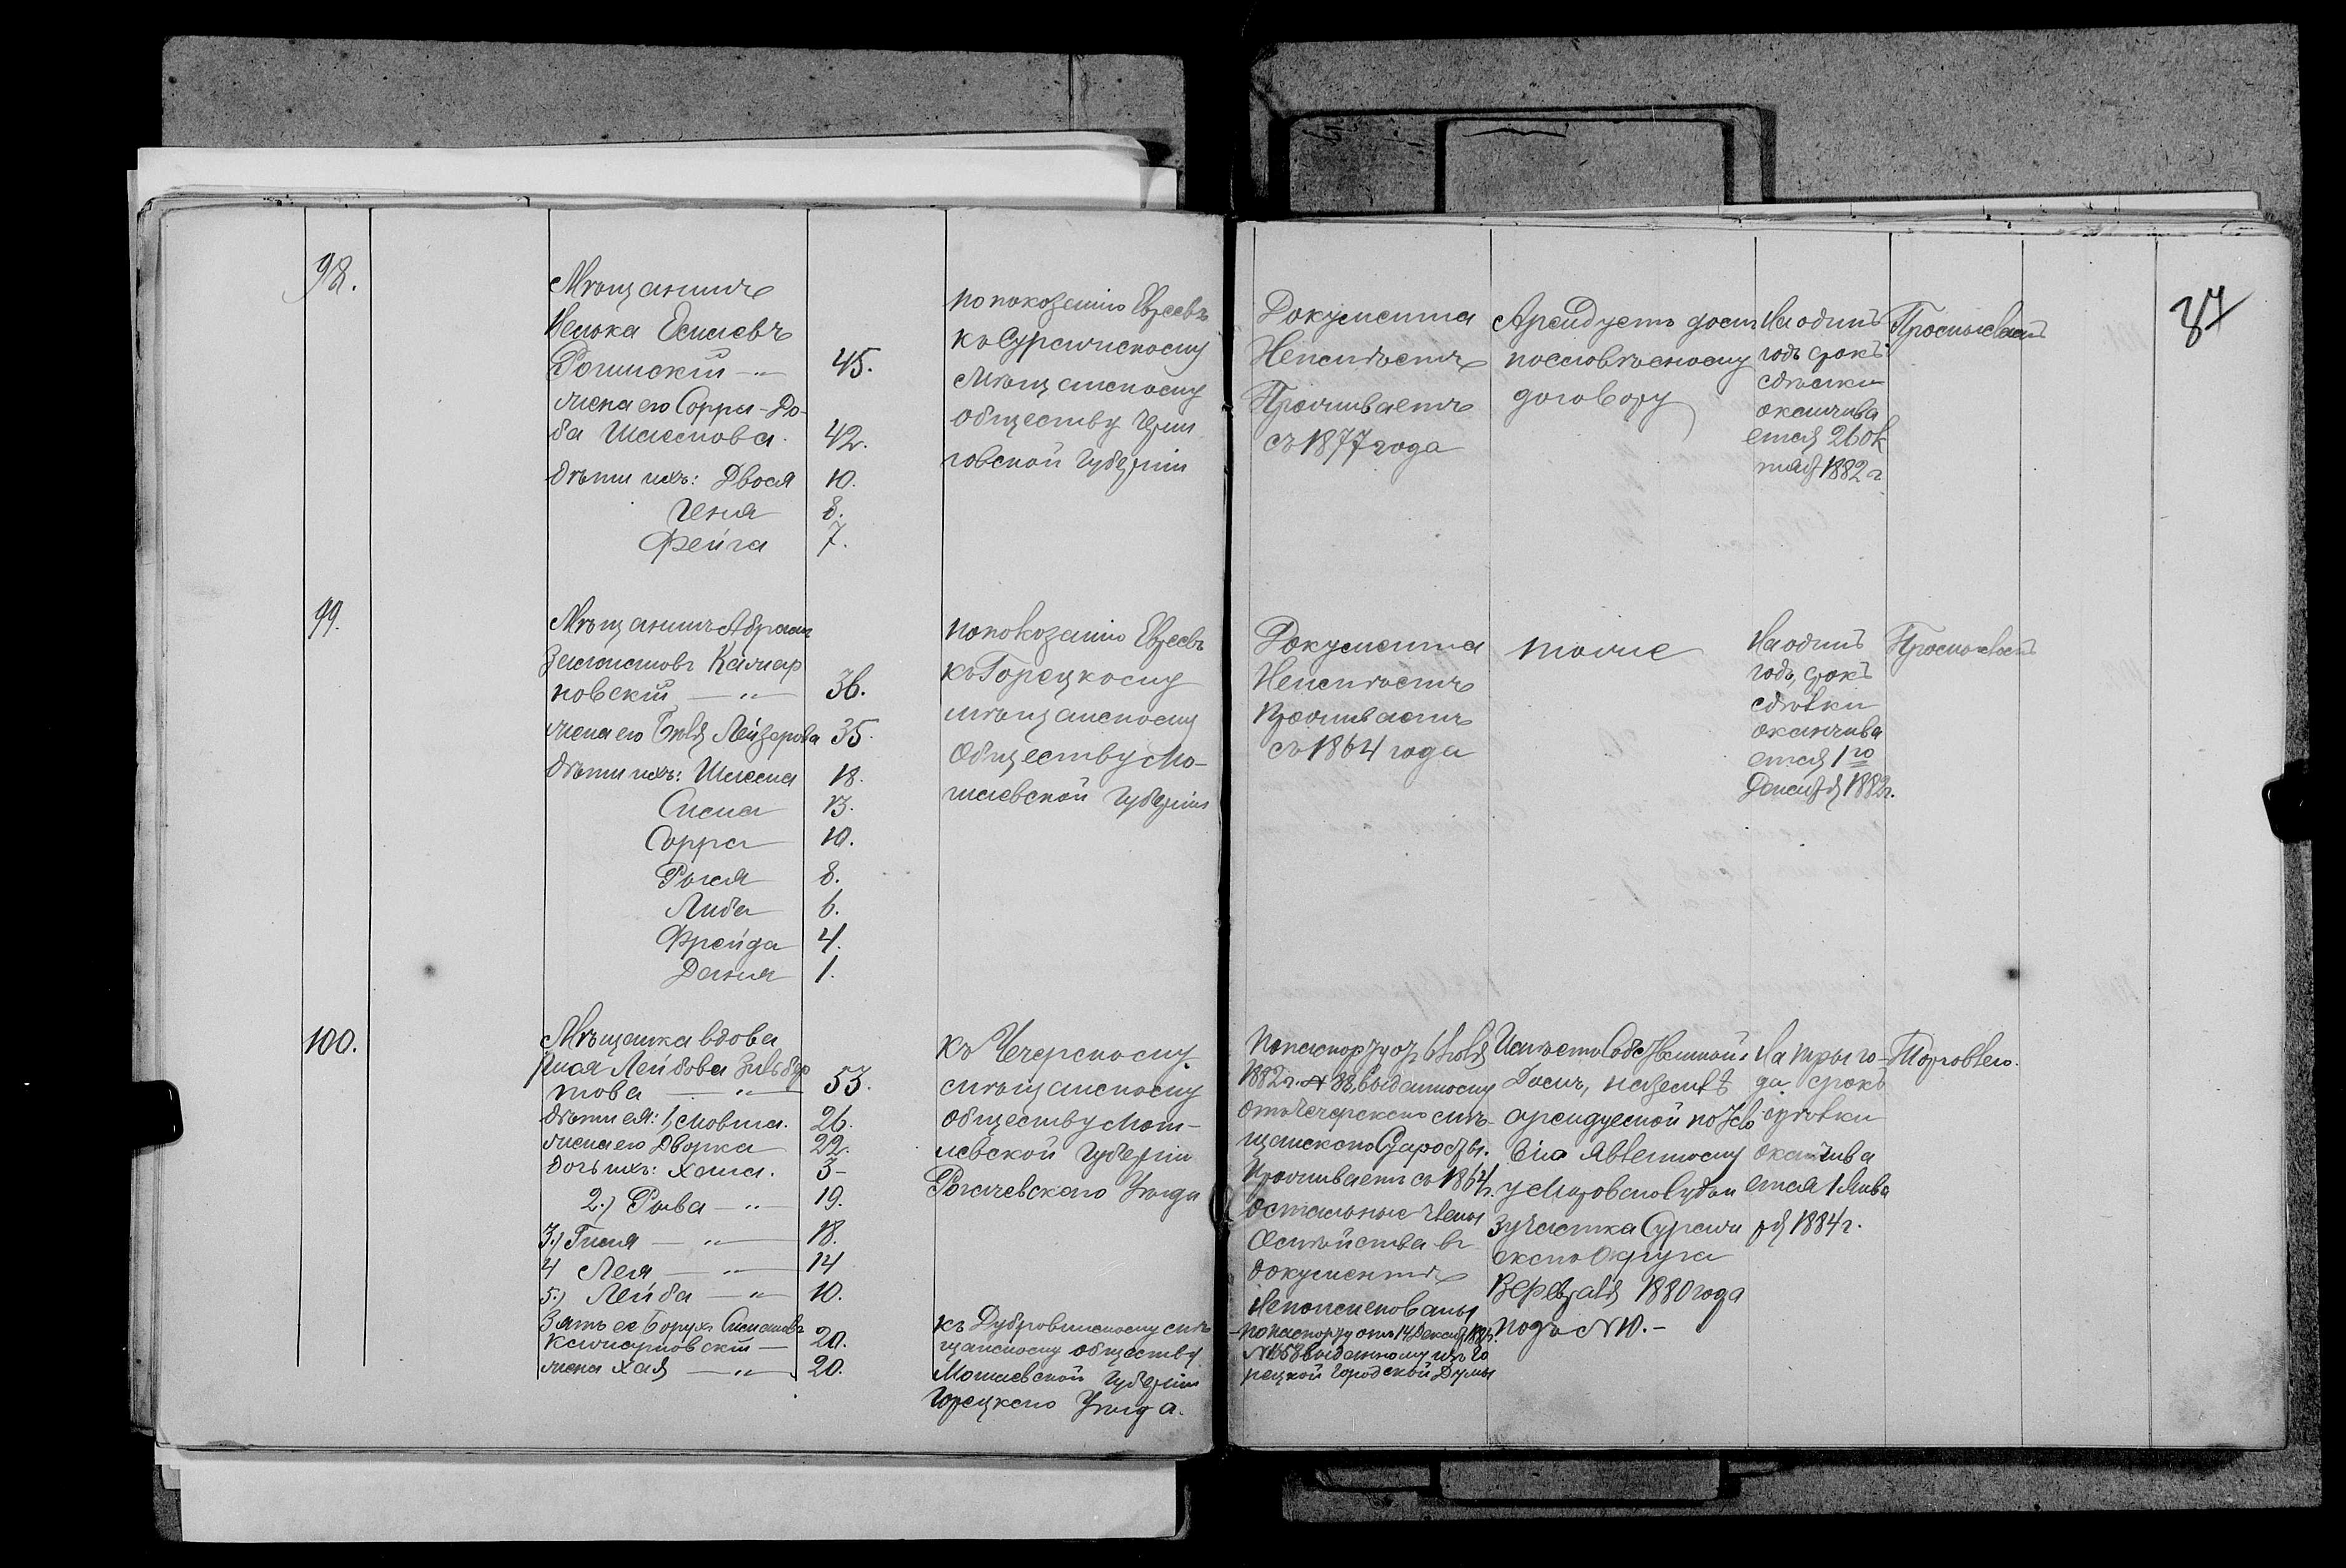 98.
Мѣщанинъ
Рогинскій — „ — 45.
жена его Сорра-До-
ба 42.
дѣти ихъ: Двося 10.
Геня 8.
Фейга 7.
по показанію Евреевъ
къ Суражскому
мѣщанскому
обществу Черни
говской Губерніи
Документа
Неимѣетъ
Проживаетъ
съ 1877 года
Арендуетъ домъ
по словѣсному
договору
На одинъ
годъ срокъ
сдѣлки
оканчива
ется 26 Ок
тяб 1882 г.
37
99.
Мѣщанинъ Абрамъ
новскій — „ — 36.
жена его Лейзерова 35.
дѣти ихъ: 18.
Сима 13.
Сорра 10.
8.
Либа 6.
Фрейда 4.
Даня 1.
по показанію Евреевъ
къ Горецкому
мѣщанскому
Обществу Мо-
гилевской Губерніи
Документа
Неимѣетъ
проживаетъ
съ 1864 года
тоже
На одинъ
годъ, срокъ
сдѣлки
оканчива
ется 1го
Декабря 1882 г.
100.
Мѣщанка вдова
Лейбова Зильбер
това — „ — 53.
дѣти ея: 1, Мовша. 26.
жена его Дворка 22.
дочь ихъ: Хана. 3 -
2.) Рива — „ — 19.
3.) Гися — „ — 18.
4 Лея — „ — 14
5.) Лейба — „ — 10.
Зять ее Борухъ 20.
жена Хая — „ — 20.
къ Чечерскому
мѣщанскому
обществу Моги-
левской Губерніи
Рогачевскаго Уѣзда
къ Дубровинскому мѣ
щанскому обществу
Могилевской Губерніи
Горецкаго Уѣзда.
По паспорту отъ 6 Июля
1882 г. № 88, выданному
отъ Чечерскаго мѣ-
щанскаго Старосты.
Проживаетъ съ 1864 г.
остальные члены
Семѣйства въ
документѣ
Непоименованы
по паспорту отъ 14 Декаб.
выданному изъ Го
рецкой Городской Думы
Имѣетъ Собственный
Домъ, на землѣ
арендуемой по усло
вію явленному
у Мироваго Судьи
3 участка Сураж
скаго Округа
февраля 1880 года
подъ № 10. -
На три го-
да срокъ
сдѣлки
оканчива
ется 1 Янва
ря 1884 г.
Торговлею.